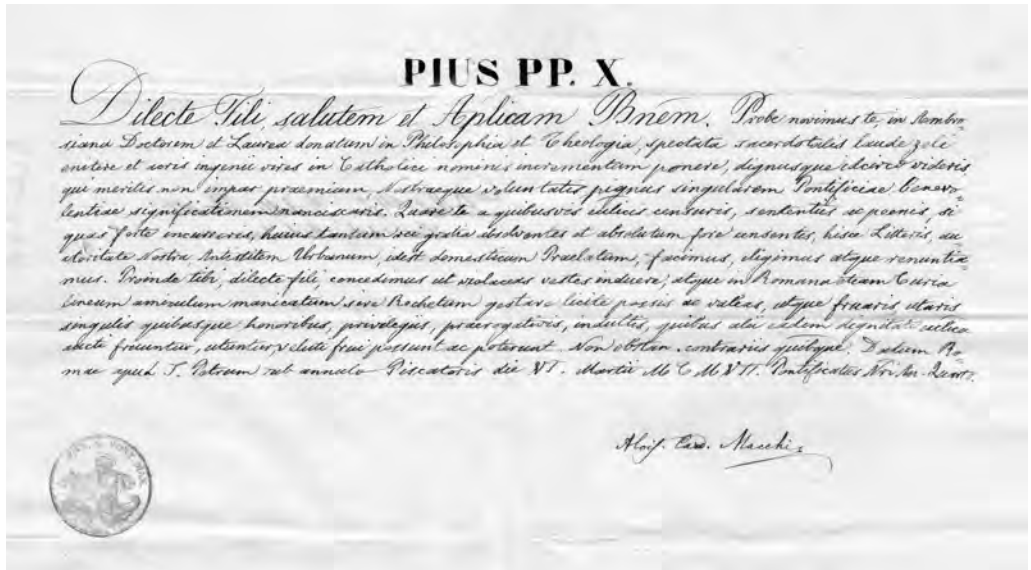 PIUS PP. X.
Dilecte Fili, salutem et Aplicam Bnem. Probe novimus te, in Ambro-
siana Doctorem et Laurea donatum in Philosophia et Theologia, spectata sacerdotali laude zelo
enitere et acris ingenii vires in Catholici nominis incrementum ponere, dignusque videris
qui meritis non impar praemium, Nostraeque voluntatis pignus singularem Pontificiae benevo-
lentiae significationem nanciscaris. Quare te a quibusvis censuris, sententiis ac poenis, si
quas forte incurreris, huius tantum rei gratia absolventes et absolutum fore censentes, hisce Litteris, au-
ctoritate Nostra Antistitem Urbanum, idest domesticum Praelatum, facimus, eligimus atque renuntia-
mus. Proinde tibi, dilecte fili, concedimus ut violaceas vestes induere, atque in Romana etiam Curia
lineum amiculum manicatum seu Rochetum gestare licite possis ac valeas, atque fruaris utaris
singulis quibusque honoribus, privilegiis, praerogativis, indultis, quibus alii eadem dignitate
aucti fruuntur, utuntur, frui possunt ac poterunt. Non obstan. contrariis quibusque. Datum Ro-
mae apud S. Petrum sub annulo Piscatoris die VI. Martii MCMVII. Pontificatus Nri An. Quarto.
Alois. Card. Macchi